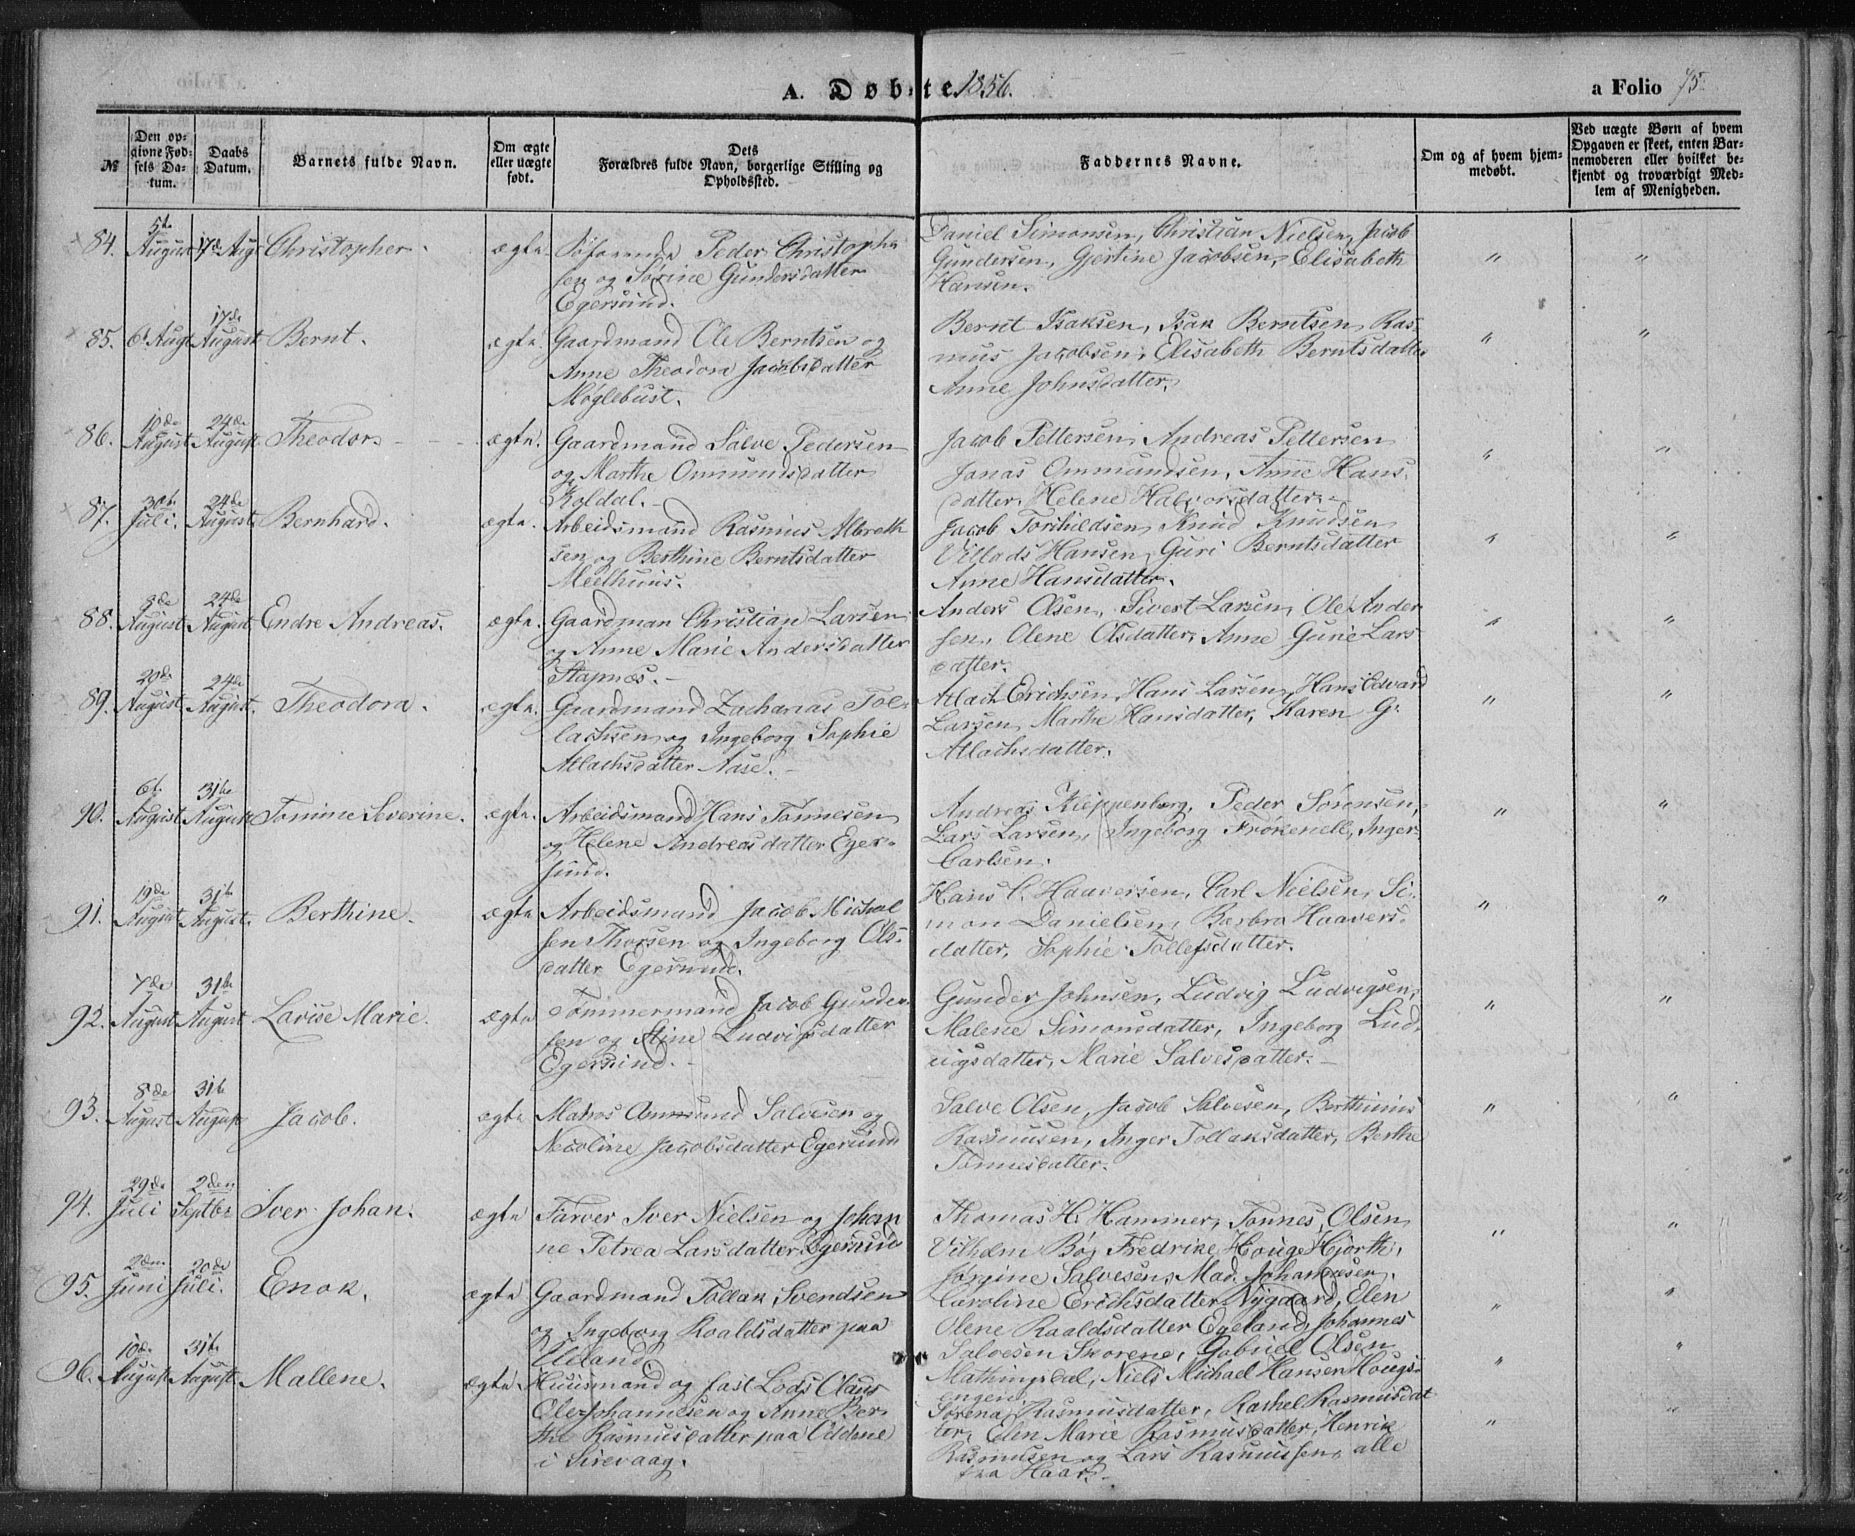 A. Døbte 1856.
a Folio 75.
№
Den opgivne Fødsels Datum.
Daabs Datum.
Barnets fulde Navn.
Om ægte eller uægte født.
Dets Forældres fulde Navn, borgerlige Stilling og Opholdssted.
Faddernes Navne.
Om og af hvem hjemmedøbt.
Ved uægte Børn af hvem Opgaven er skeet, enten Barnemoderen eller hvilket bekjendt og troværdigt Medlem af Menigheden.
84. 5te August 17de Augt Christopher. ægte. Søfarende Peder Christopher
sen og Sørine Gundersdatter
Egersund.
Daniel Simonsen, Christian Nielsen, Jacob
Gundersen, Gjertine Jacobsen, Elisabeth
Hansen. " "
85. 6t Augt 17de August Bernt. ægte. Gaardmand Ole Berntsen og
Anne Theodora Jacobsdatter
Møglebust.
Bernt Isaksen, Isak Berntsen, Ras-
mus Jacobsen, Elisabeth Berntsdatter
Anne Johnsdatter. " "
86. 10de August 24de August Theodor. ægte. Gaardmand Salve Pedersen
og Marthe Ommundsdatter
Koldal.
Jacob Pettersen, Andreas Pettersen
Jonas Ommundsen, Anne Hans-
datter, Helene Halvorsdatter. " "
87. 30te Juli. 24de August Bernhard. ægte. Arbeidsmand Rasmus Albreth
sen og Berthine Berntsdatter
Meelhuus.
Jacob Torkildsen, Knud Knudsen
Villads Hansen, Guri Berntsdatter
Anne Hansdatter. " "
88. 24de August August Endre Andreas. ægte. Gaardman Christian Larsen
og Anne Marie Andersdatter
Stapnæs.
Anders Olsen, Sivert Larsen, Ole Ander
sen, Olene Olsdatter, Anne Gurie Lars
datter. " "
89. 20de August 24de August. Theodora. ægte. Gaardmand Zacharias Tol-
lachsen og Ingeborg Sophie
Atlachsdatter Aase.
Atlach Erichsen, Hans Larsen, Hans Edvard
Larsen, Marthe Hansdatter, Karen G.
Atlachsdatter. " "
90. 6t. August 31te August Tomine Severine. ægte. Arbeidsmand Hans Tønnesen
og Helene Andreasdatter Eger-
sund.
Andreas Kleppenberg, Peder Sørensen,
Lars Larsen, Ingeborg Frøkenell, Inger
Carlsen. " "
91. 19de August 31te August. Berthine. ægte Arbeidsmand Jacob Michal
sen Thorsen og Ingeborg Ols-
datter Egersund.
Hans C. Haaversen, Carl Nielsen, Si-
mon Danielsen, Barbro Haavers-
datter, Sophie Tollefsdatter. " "
92. 7de August 31te August Lavise Marie. ægte Tømmermand Jacob Gunder
sen og Stine Ludvigsdatter
Egersund.
Gunder Johnsen, Ludvig Ludvigsen,
Malene Simonsdatter, Ingeborg Lud-
vigsdatter, Marie Salvesdatter. " "
93. 8de August 31te August Jacob. ægte Matros Ommund Salvesen og
Nicoline Jacobsdatter Egersund
Salve Olsen, Jacob Salvesen, Berthinius
Rasmusen, Inger Tollaksdatter, Berthe
Tønnesdatter. " "
94. 29de Juli 2den Septbr Iver Johan. ægte Farver Iver Nielsen og Johan
ne Petrea Larsdatter Egersund
Thomas H. Hammer, Tønnes Olsen
Vilhelm Bø, Fredrike Houge Hjorth,
Jørgine Salvesen, Mad. Johannesen. " "
95. 2den Juni 20de Juli. Enok. ægte Gaardmand Tollak Svendsen
og Ingeborg Roaldsdatter paa
Ueland.
Caroline Erichsdatter Nygaard, Elen
Olene Raaldsdatter Egeland, Johannes
Salvesen Skorene, Gabriel Olsen
Mathingsdal, Niels Michael Hansen Hougs-
engen. " "
96. 10de August 31te August. Mallene. ægte. Huusmand og fast Lods Claus
Ole Johannesen og Anne Ber-
the Rasmusdatter paa Oddene
i Sirevaag.
Sørena Rasmusdatter, Rachel Rasmusdat
ter, Elen Marie Rasmusdatter, Henrik
Rasmusen og Lars Rasmussen, alle
fra Haar. " "